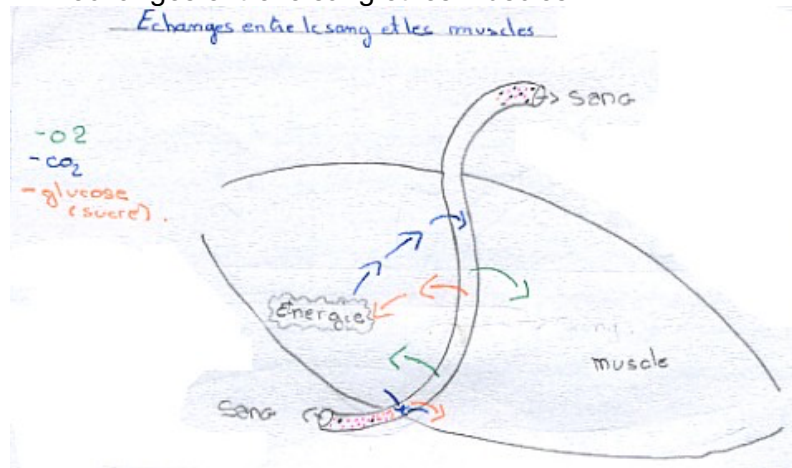 Echanges entre le sang et les muscles
-> sang
- O2
- CO2
- glucose
(sucre).
Energie
muscle
Sang